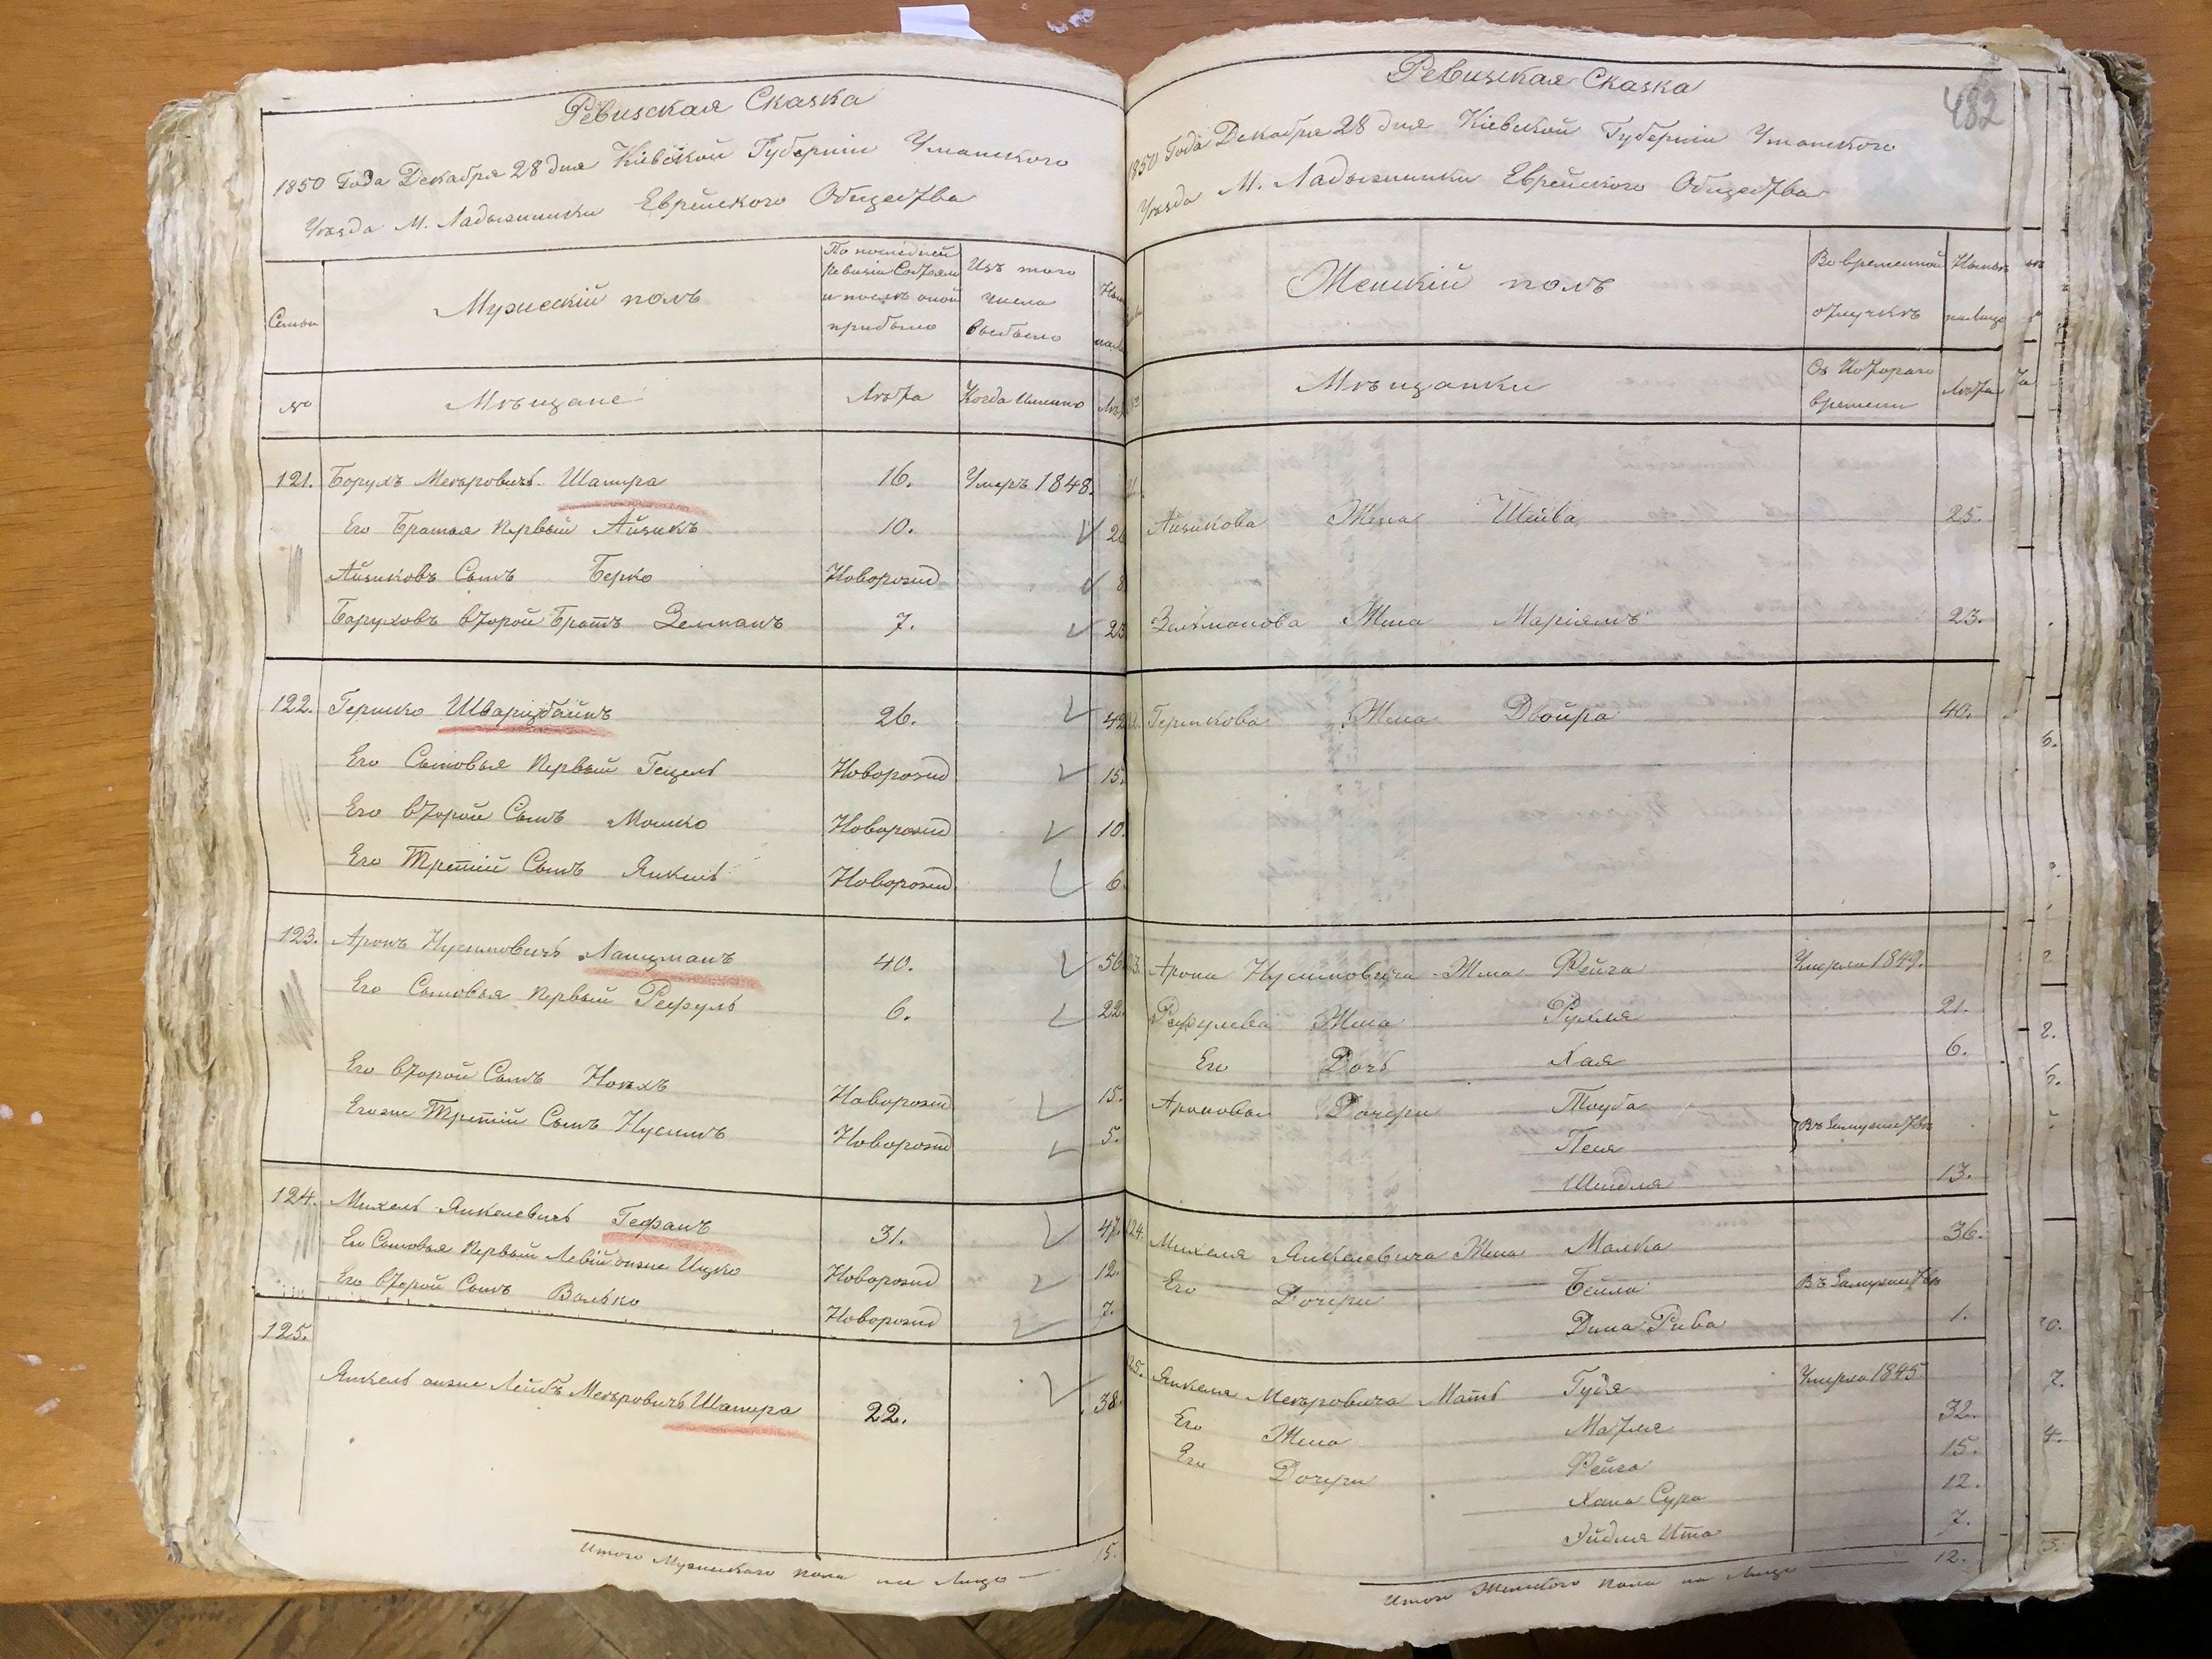 Ревизская Сказка
1850 Года Декабря 28 дня Кіевской Губерніи Уманскаго
Уезда М. Ладыжинки Еврейскаго Общества
Семьи
Мужескій полъ
По последней
Ревизіи Состояло
и после оной
прибыло
Изъ того
числа
выбыло
№
Мѣщане
Лѣта
Когда Именно
121. Борухъ Меъровичъ Шапира 16. Умеръ 1848.
Его Братья Первый Айзикъ 10. 26
Айзиковъ Сынъ Берко Новорожд 8
Боруховъ Второй Братъ Зельманъ 7. 23
122. Гершко Шварцбаймъ 26. 42
Его Сыновья Первый Гецель Новорожд 15.
Его Второй Сынъ Мошко Новорожд 10.
Его Третій Сынъ Янкель Новорожд 6.
123. Аронъ Нусимовичъ Лащманъ 40. 56
Его Сыновья Первый Рефуль 6. 22.
Его Второй Сынъ Новхъ Новорожд 15.
Егоже Третій Сынъ Нусимъ Новорожд 5.
124. Михель Янкелевичъ Гефанъ 31. 47.
Его Сыновья Первый Левій онже Ицко Новорожд 12.
Его Второй Сынъ Волько Новорожд 7.
125.
Янкель онже Лейбъ Меъровичъ Шапира 22. 38.
Итого Мужескаго пола на Лицо 15.
Ревизская Сказка
482
1850 Года Декабря 28 дня Кіевской Губерніи Уманскаго
Уезда М. Ладыжинки Еврейскаго Общества
Женскій полъ
Во временной
отлучкѣ
Ныне
на Лицо
Мѣщанки
Съ Котораго
времени
Лѣта
Айзикова Жена Шейва 25.
Зельманова Жена Маріямъ 23.
Гершкова Жена Двойра 40.
Арона Нусимовича Жена Фейга Умерла 1849.
Рефулева Жена Рухля 21.
Его Дочь Хая 6.
Аронова Дочери Тауба
Песя Въ Замужестве
Шейдля 13.
124. Михеля Янкелевича Жена Малка 36.
Его Дочери Бейла Въ Замужестве
Дина Рива 1.
Янкеля Меъровича Мать Гудя Умерла 1845
Его Жена Матля 32.
Его Дочери Фейга 15.
Хана Сура 12.
Эйдля Ита 7.
Итого Женскаго пола на Лицо 12.